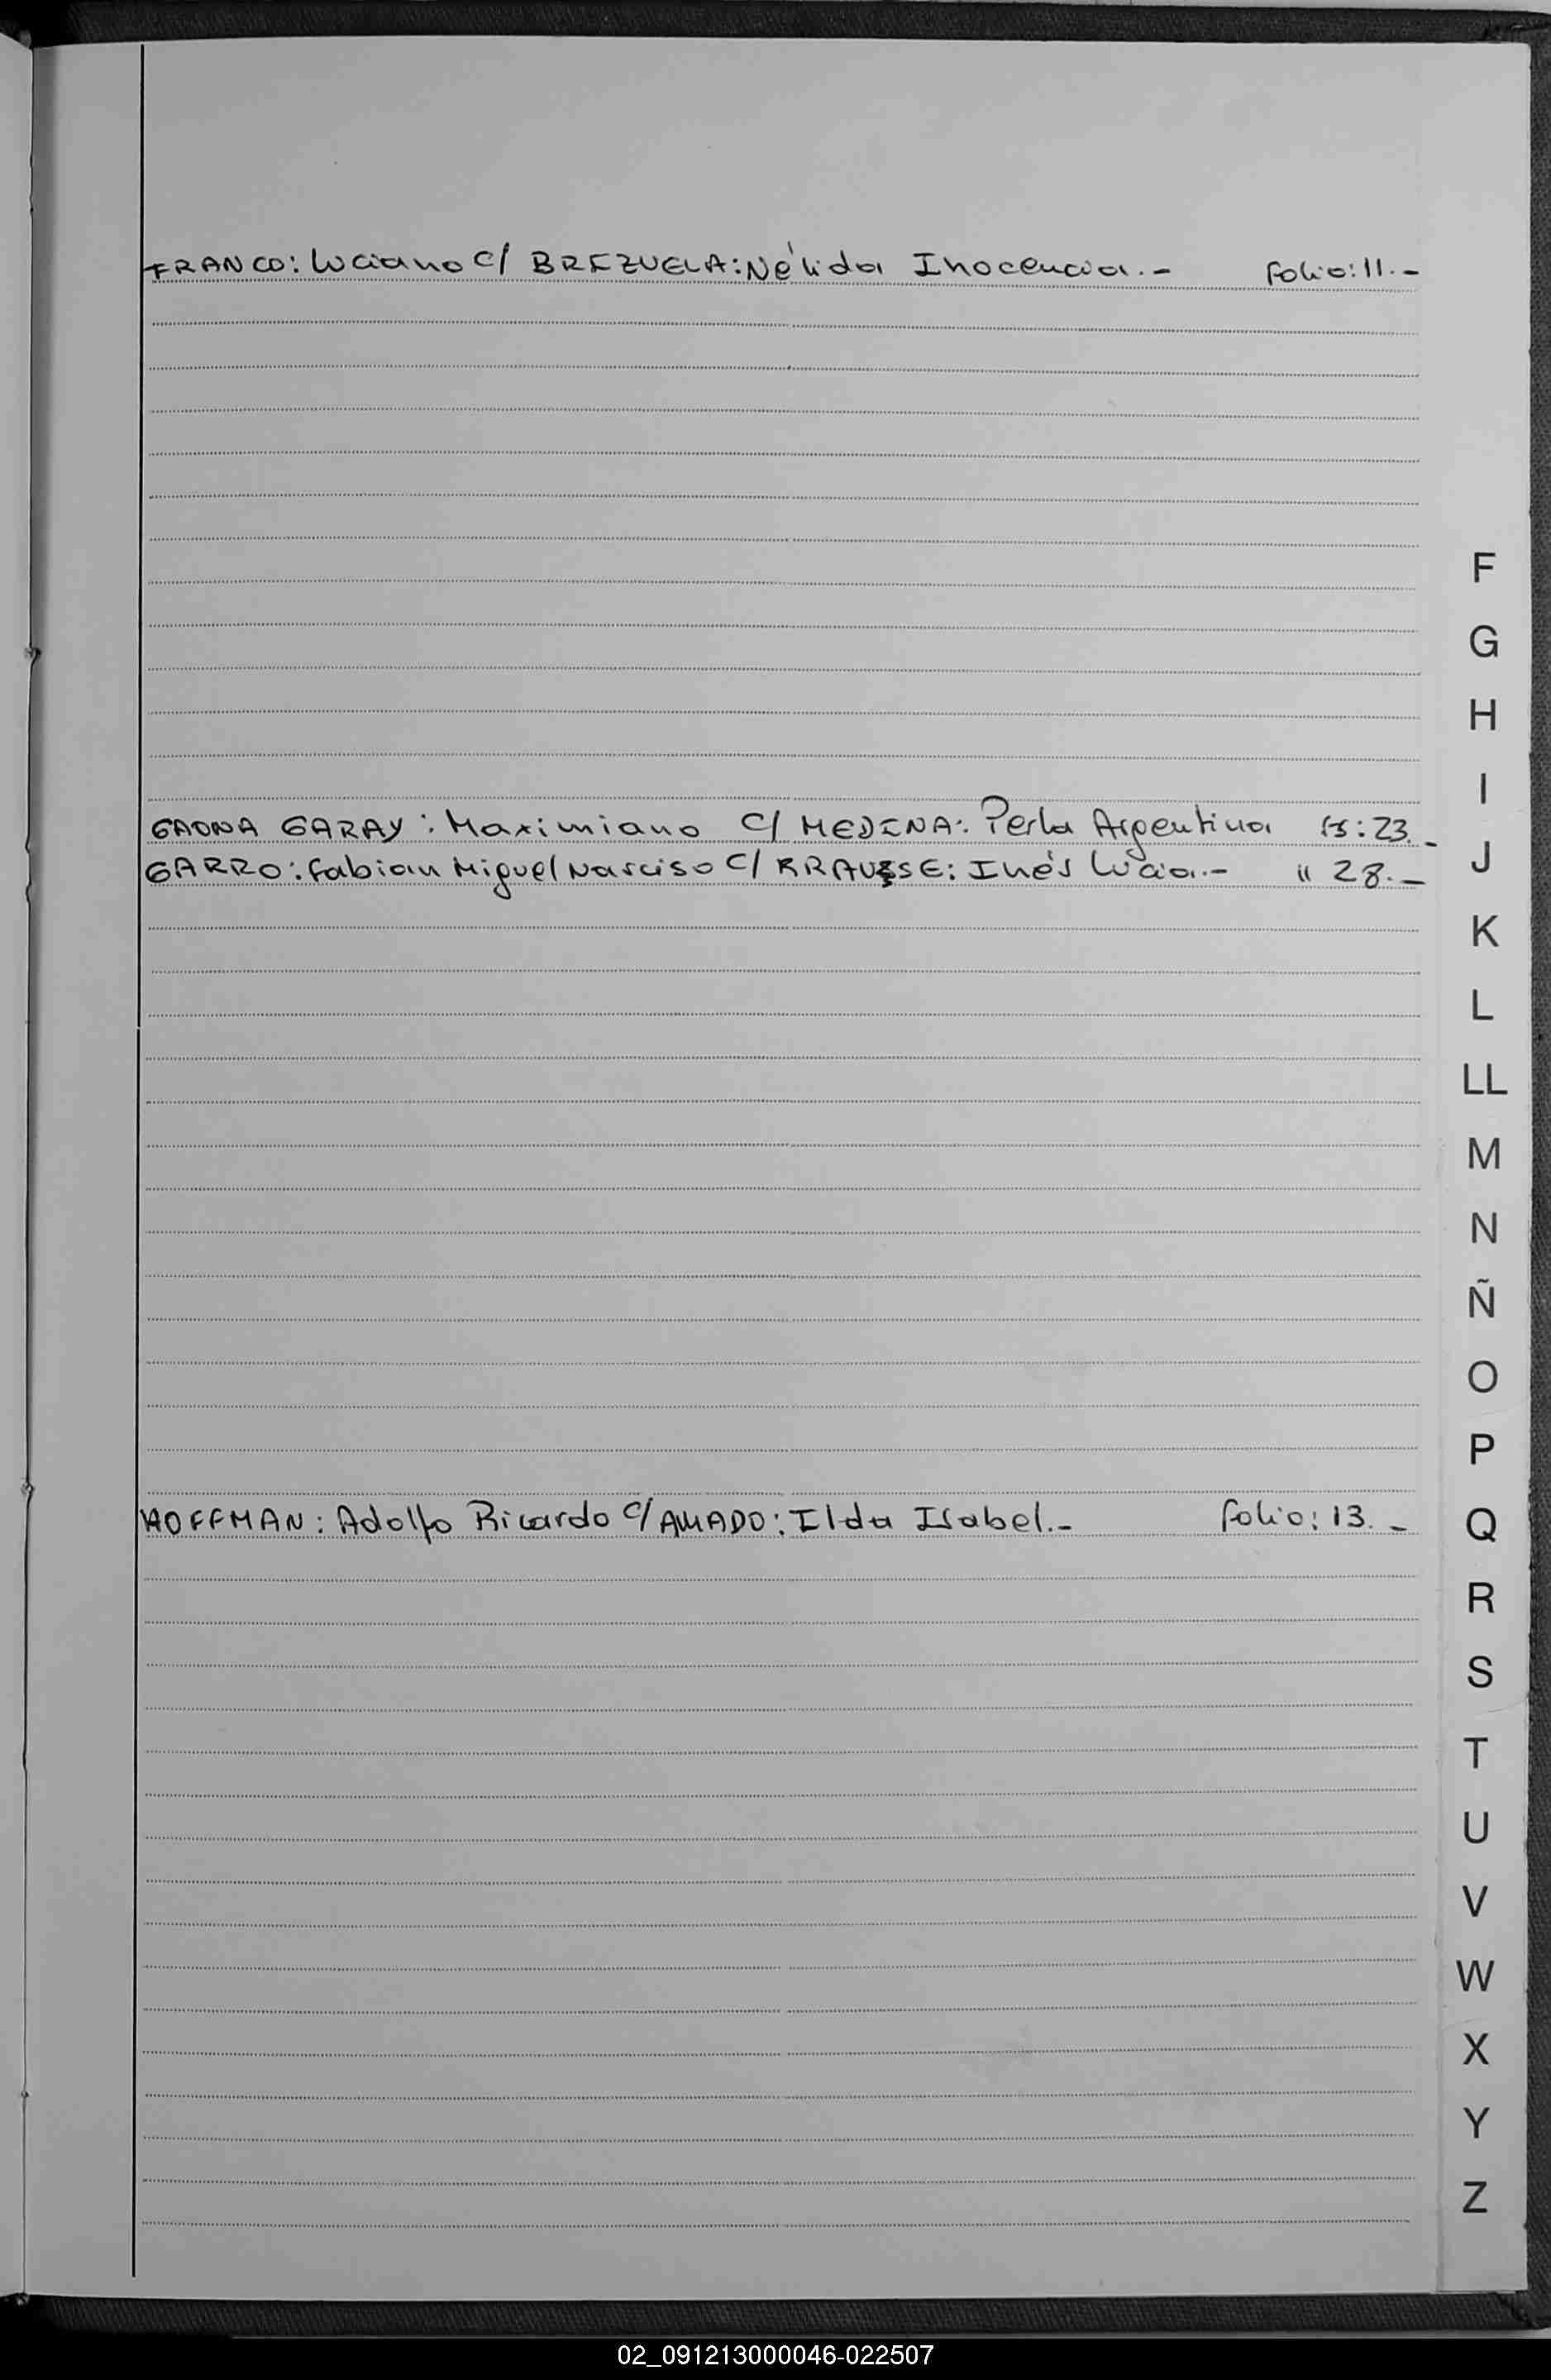 FRANCO: Luciano c/ BREZUELA: Nélida Inocencia.- Folio: 11.-
F
G
H
I
GAONA GARAY: Maximiano c/ MEDINA: Perla Argentina 23.-
J
GARRO: Fabian Miguel Narciso c/ KRAUSSE: Inés Lucia.- " 28.-
K
L
LL
M
N
Ñ
O
P
HOFFMAN: Adolfo Ricardo c/ AMADO: Ilda Isabel.- Folio: 13.-
Q
R
S
T
U
V
W
X
Y
Z
02_091213000046-022507